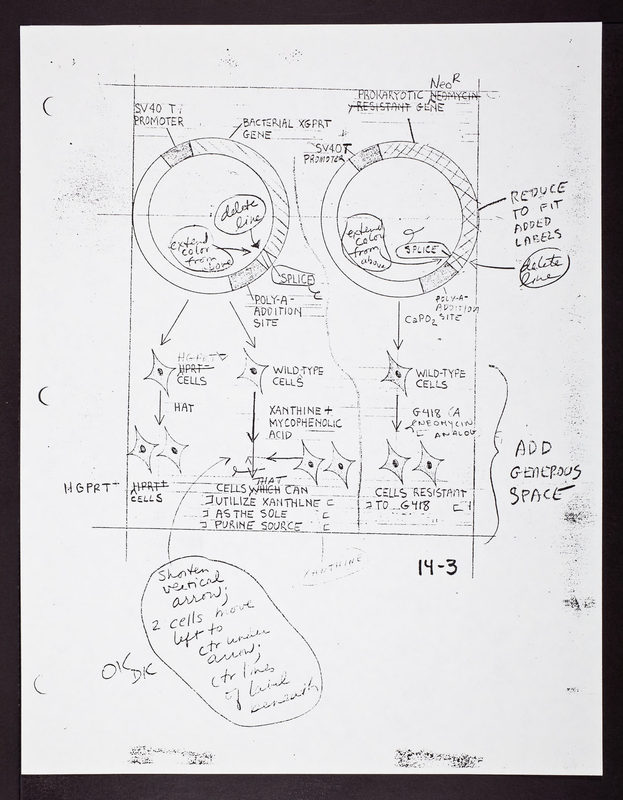 Neo R
PROKARYOTIC NEOMYCIN
RESISTANT GENE
SV40 T
PROMOTER
BACTERIAL XGPRT
GENE
SV40T
PROMOTER
REDUCE
TO FIT
ADDED
LABELS
delete
line
extend
color
from
above
SPLICE
extend
color
from
above
SPLICE
delete
line
POLY-A-
ADDITION
SITE
POLY-A-
ADDITION
SITE
CaPO2
HGPRT
HPRT
CELLS
WILD-TYPE
CELLS
WILD-TYPE
CELLS
HAT
XANTHINE +
MYCOPHENOLIC
ACID
G418 (A
NEOMYCIN
ANALOG
ADD
GENEROUS
SPACE
HGPRT+
HPRT+
CELLS
THAT
CELLS WHICH CAN
UTILIZE XANTHINE
AS THE SOLE
PURINE SOURCE
CELLS RESISTANT
TO G418
XANTHINE
14-3
Shorten
vertical
arrow;
2 cells move
left to
ctr under
arrow;
ctr lines
of label
beneath
OK DK